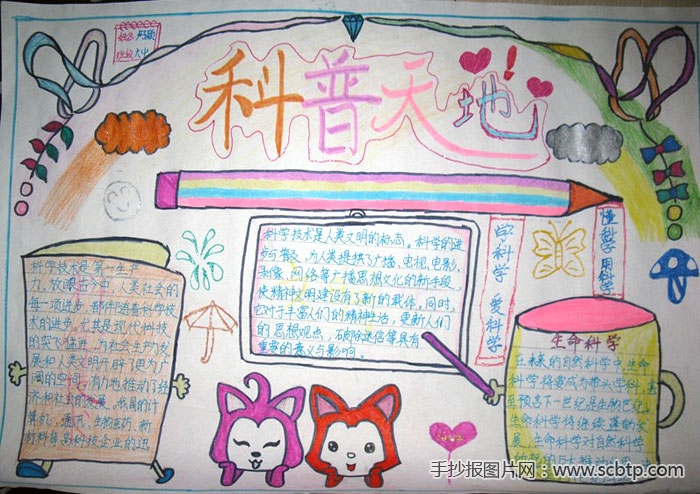 科普天地!
科学技术是人类文明的标志。科学的进
步与普及,为人类提供了广播、电视、电影、
网络等广播思想文化的新手段,
使精神文明建设有了新的载体,同时,
它对于丰富人们的精神生活,更新人们
的思想观点,破除迷信等具有
重要的意义与影响。
学科学
爱科学
懂科学 用科学
科学技术是第一生产
力,放眼古今中,人类社会的
每一项进步,都伴随着科学技
术的进步。尤其是现代科技
的突飞猛进,为社会生产力发
展和人类文明开辟了更为广
阔的空间,有力地推动了经
济和社会的发展。我国的计
算机、通讯、生物医药、新
材料等高科技企业的迅
生命科学
在未来的自然科学中,生命
科学将要成为带头学科,甚
至预言下一世纪是生物世纪,
生命科学将继续蓬勃发
展,生命科学对自然科学
手抄报图片网:www.scbtp.com